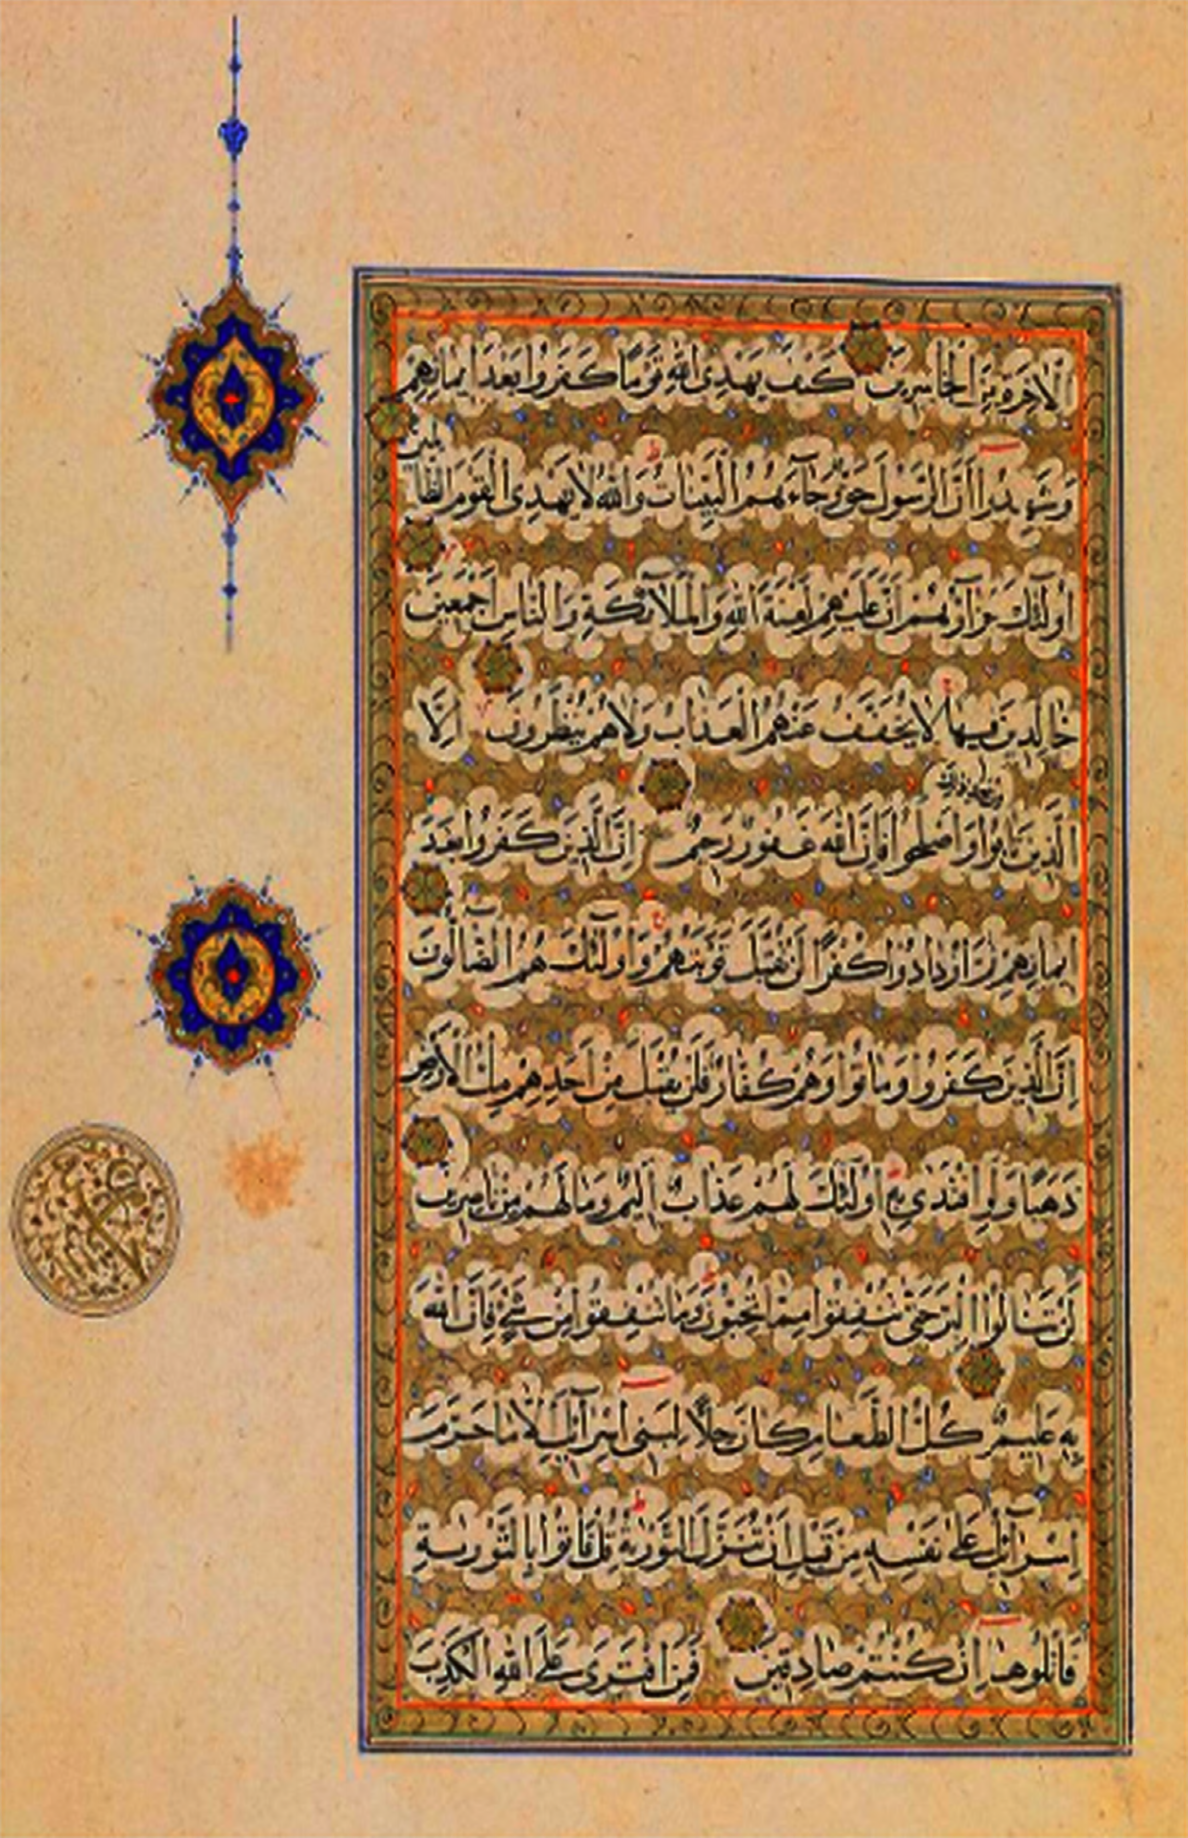 الآخرة من الخاسرين كيف يهدى الله قوما كفروا بعد ايمانهم
وشهدوا ان الرسول حق وجاءهم البينات والله لا يهدى القوم الظا
لمين
اولئك جزآؤهم ان عليهم لعنة الله والملآئكة والناس اجمعين
خالدين فيها لا يخفف عنهم العذاب ولا هم ينظرون الا
من بعد ذلك
الذين تابوا واصلحوا فان الله غفور رحيم ان الذين كفروا بعد
ايمانهم ثم ازدادوا كفرا لن تقبل توبتهم واولئك هم الضالون
ان الذين كفروا وماتوا وهم كفار فلن يقبل من احدهم ملء الارض
ذهبا ولو افتدى به اولئك لهم عذاب اليم وما لهم من ناصرين
لن تنالوا البر حتى تنفقوا مما تحبون وما تنفقوا من شئ فان الله
به عليم كل الطعام كان حلا لبنى اسرآئيل الا ما حرم
اسرآئيل على نفسه من قبل ان تنزل التورية قل فاتوا بالتورية
فاتلوها ان كنتم صادقين فمن افترى على الله الكذب